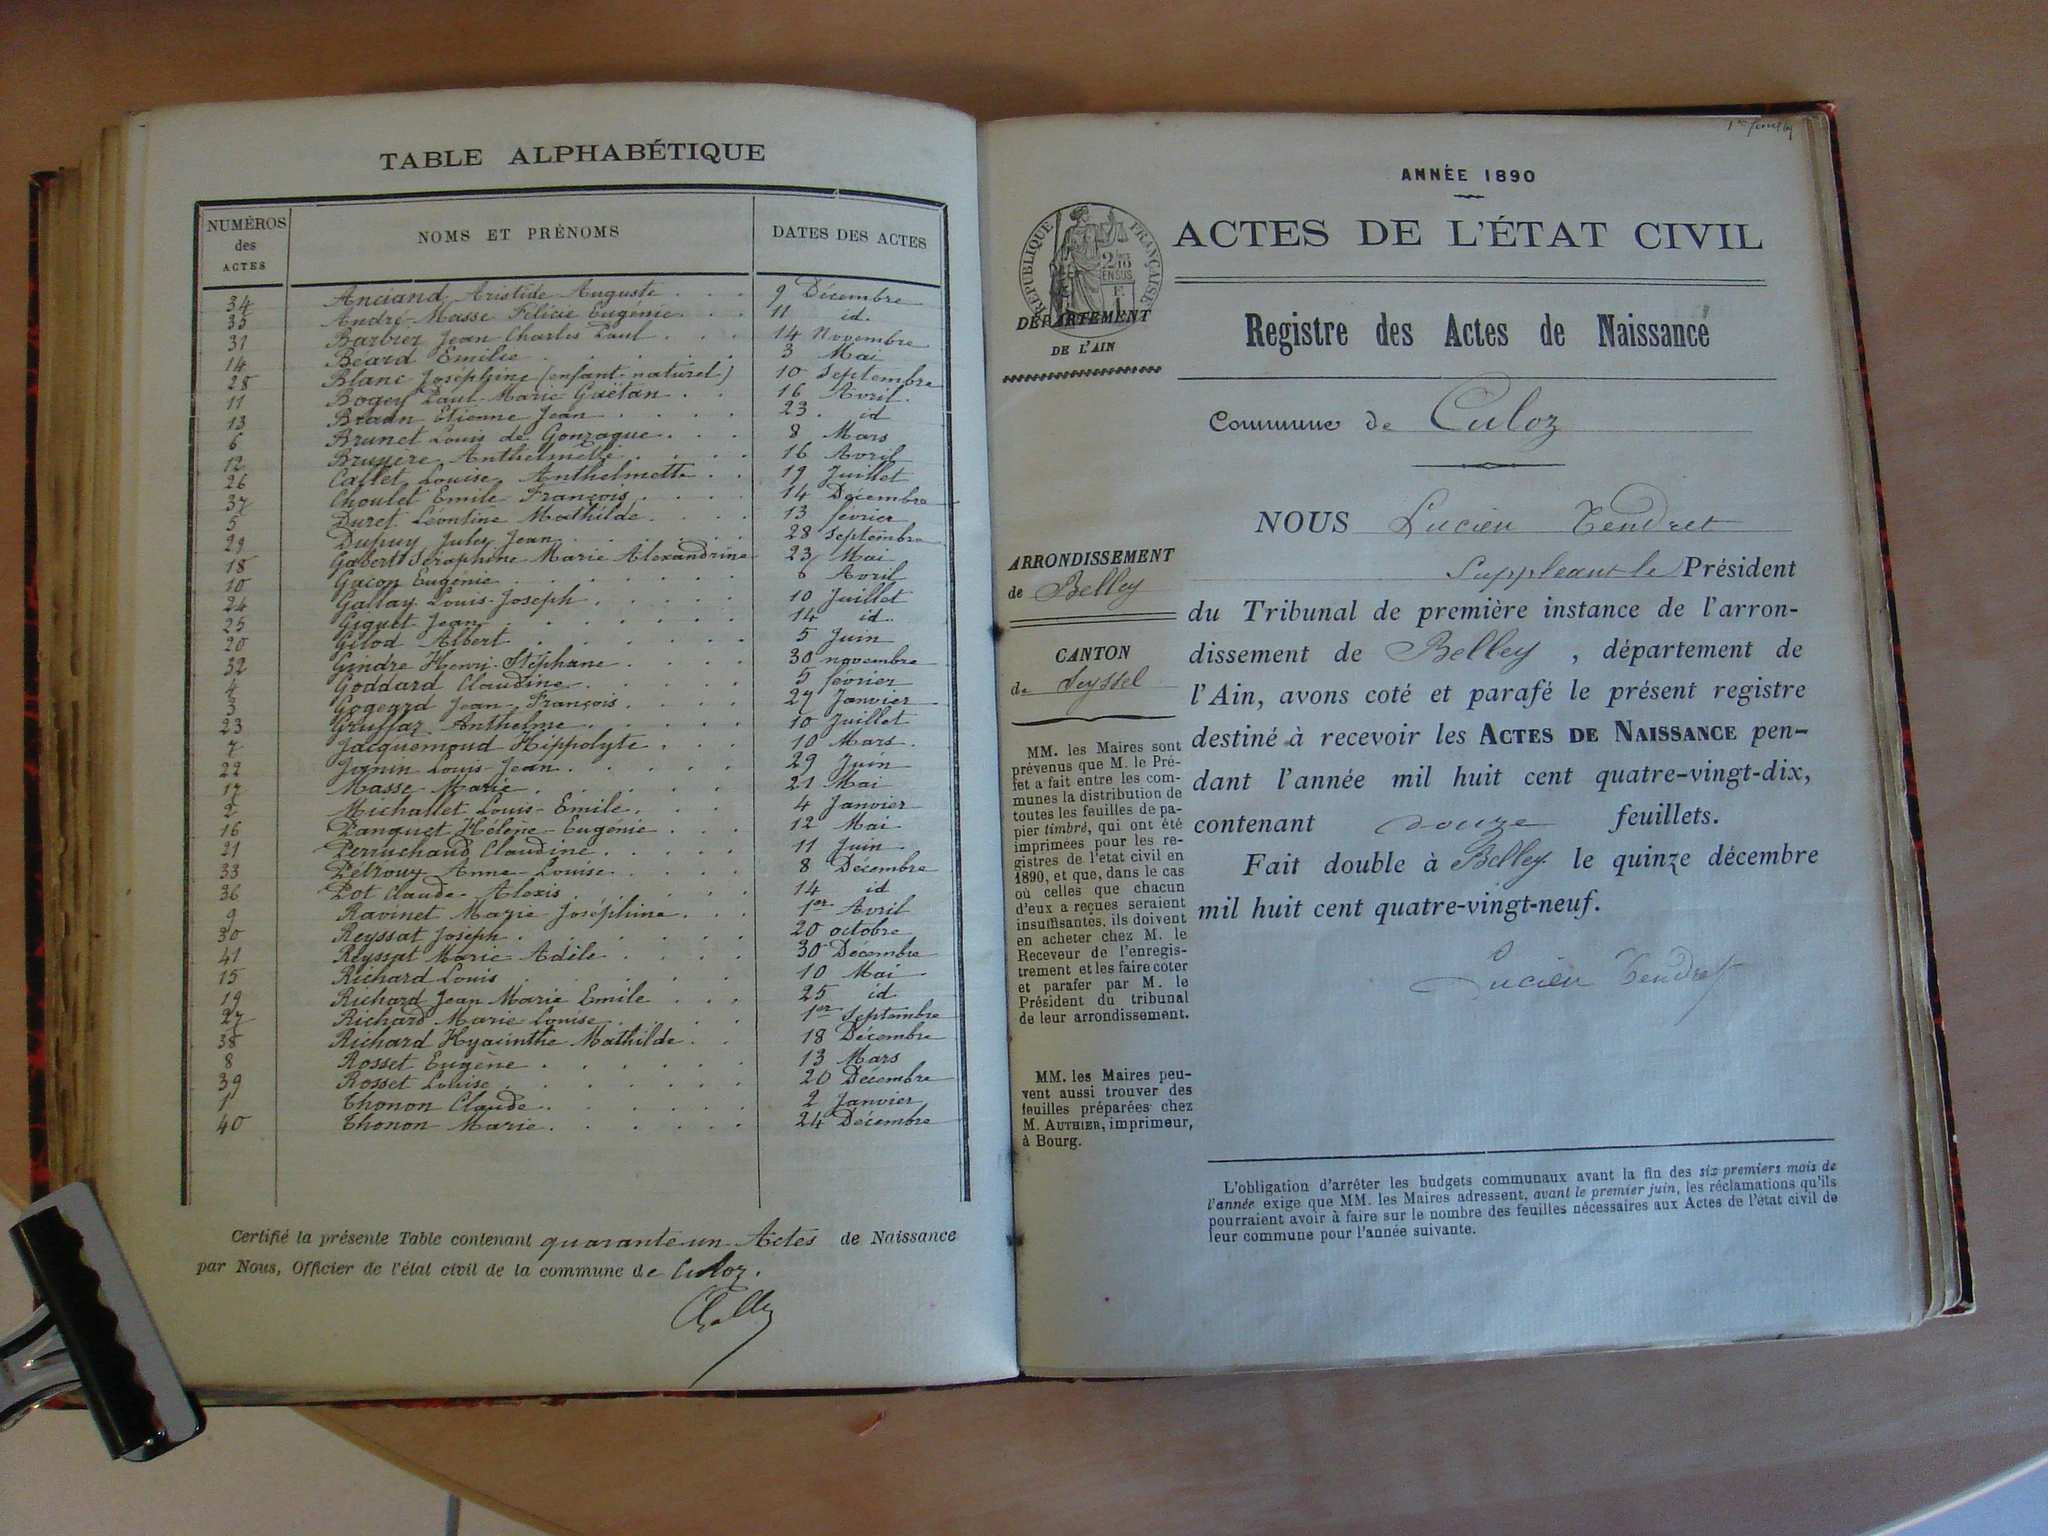 TABLE ALPHABÉTIQUE
NUMÉROS des ACTES NOMS ET PRÉNOMS DATES DES ACTES
34 Anciand Aristide Auguste 9 Décembre
35 André-Masse Félicie Eugénie 11 id.
31 Barbier Jean Charles Paul 14 Novembre
14 Béard Emilie 3 Mai
28 Blanc Joséphine (enfant naturel) 10 Septembre
11 Bogey Paul Marie Gaëtan 16 Avril
13 Braun Etienne Jean 23 id
6 Brunet Louis de Gonzague 8 Mars
12 Bruyère Anthelmette 16 Avril
26 Callet Louise Anthelmette 19 Juillet
37 Choulet Emile François 14 Décembre
5 Duret Léontine Mathilde 13 février
29 Dupuy Jules Jean 28 Septembre
18 Gabert Séraphine Marie Alexandrine 23 Mai
10 Gacon Eugénie 6 Avril
24 Gallay Louis-Joseph 10 Juillet
25 Giguet Jean 14 id.
20 Gilod Albert 5 Juin
32 Gindre Henri-Stéphane 30 novembre
4 Goddard Claudine 5 février
3 Gogeard Jean-François 27 Janvier
23 Gruffaz Anthelme 10 Juillet
7 Jacquemoud Hippolyte 10 Mars
22 Janin Louis-Jean 29 Juin
17 Masse Marie 21 Mai
2 Michallet Louis-Emile 4 Janvier
16 Panquet Hélène-Eugénie 12 Mai
21 Perruchaud Claudine 11 Juin
33 Pétroux Anne-Louise 8 Décembre
36 Pot Claude-Alexis 14 id
9 Ravinet Marie Joséphine 1er Avril
30 Reyssat Joseph 20 octobre
41 Reyssat Marie Adèle 30 Décembre
15 Richard Louis 10 Mai
19 Richard Jean Marie Emile 25 id
27 Richard Marie Louise 1er Septembre
38 Richard Hyacinthe Mathilde 18 Décembre
8 Rosset Eugène 13 Mars
39 Rosset Louise 20 Décembre
1 Thonon Claude 2 Janvier
40 Thonon Marie 24 Décembre
Certifié la présente Table contenant quarante-un Actes de Naissance
par Nous, Officier de l'état civil de la commune de Culoz.
1er feuillet
ANNÉE 1890
ACTES DE L'ÉTAT CIVIL
RÉPUBLIQUE FRANÇAISE
DÉPARTEMENT
DE L'AIN
Registre des Actes de Naissance
Commune de Culoz
ARRONDISSEMENT
de Belley
CANTON
de Seyssel
MM. les Maires sont
prévenus que M. le Pré-
fet a fait entre les com-
munes la distribution de
toutes les feuilles de pa-
pier timbré, qui ont été
imprimées pour les re-
gistres de l'état civil en
1890, et que, dans le cas
où celles que chacun
d'eux a reçues seraient
insuffisantes, ils doivent
en acheter chez M. le
Receveur de l'enregis-
trement et les faire coter
et parafer par M. le
Président du tribunal
de leur arrondissement.
MM. les Maires peu-
vent aussi trouver des
feuilles préparées chez
M. AUTHIER, imprimeur,
à Bourg.
NOUS Lucien Tendret
Suppléant le Président
du Tribunal de première instance de l'arron-
dissement de Belley, département de
l'Ain, avons coté et parafé le présent registre
destiné à recevoir les ACTES DE NAISSANCE pen-
dant l'année mil huit cent quatre-vingt-dix,
contenant douze feuillets.
Fait double à Belley le quinze décembre
mil huit cent quatre-vingt-neuf.
Lucien Tendret
L'obligation d'arrêter les budgets communaux avant la fin des six premiers mois de
l'année exige que MM. les Maires adressent, avant le premier juin, les réclamations qu'ils
pourraient avoir à faire sur le nombre des feuilles nécessaires aux Actes de l'état civil de
leur commune pour l'année suivante.